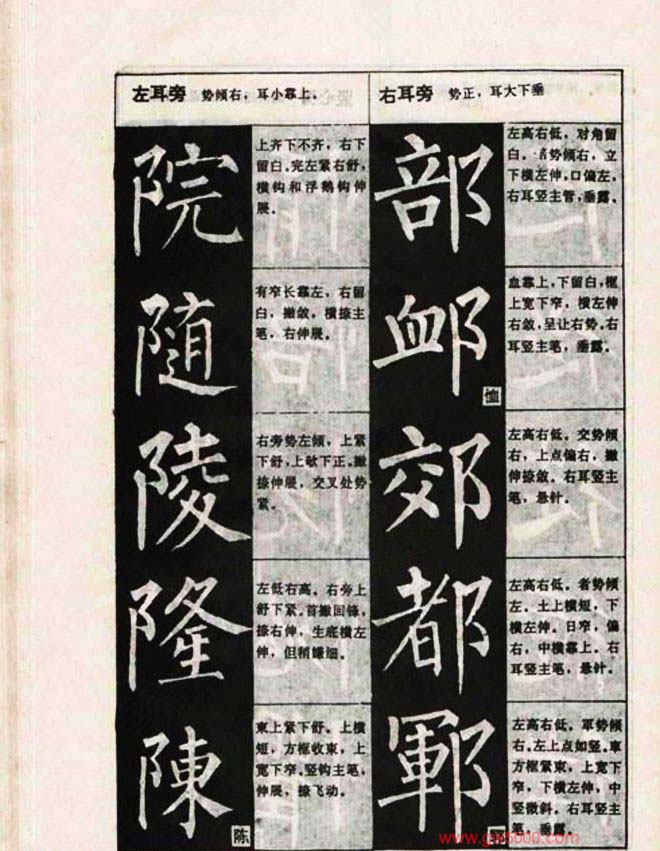 左耳旁 势倾右，耳小靠上。
院
上齐下不齐，右下
留白。完左紧右舒，
横钩和浮鹅钩伸
展。
随
有窄长靠左，右留
白，撇敛，横捺主
笔，右伸展。
陵
右旁势左倾，上紧
下舒，上欹下正。撇
捺伸展，交叉处势
紧。
隆
左低右高。右旁上
舒下紧。首撇回锋，
捺右伸，生底横左
伸，但稍嫌细。
陳
陈
東上紧下舒。上横
短，方框收束，上
宽下窄。竖钩主笔，
伸展，捺飞动。
右耳旁 势正，耳大下垂
部
左高右低，对角留
白。势倾右，立
下横左伸，口偏左。
右耳竖主管，垂露。
卹
恤
血靠上，下留白，框
上宽下窄，横左伸
右敛，呈让右势。右
耳竖主笔，垂露。
郊
左高右低。交势倾
右，上点偏右，撇
伸捺敛。右耳竖主
笔，悬针。
都
左高右低。者势倾
左。土上横短，下
横左伸。日窄，偏
右，中横靠上。右
耳竖主笔，悬针。
鄆
左高右低。軍势倾
右。左上点如竖。車
方框紧束，上宽下
窄，下横左伸，中
竖微斜。右耳竖主
垂露。